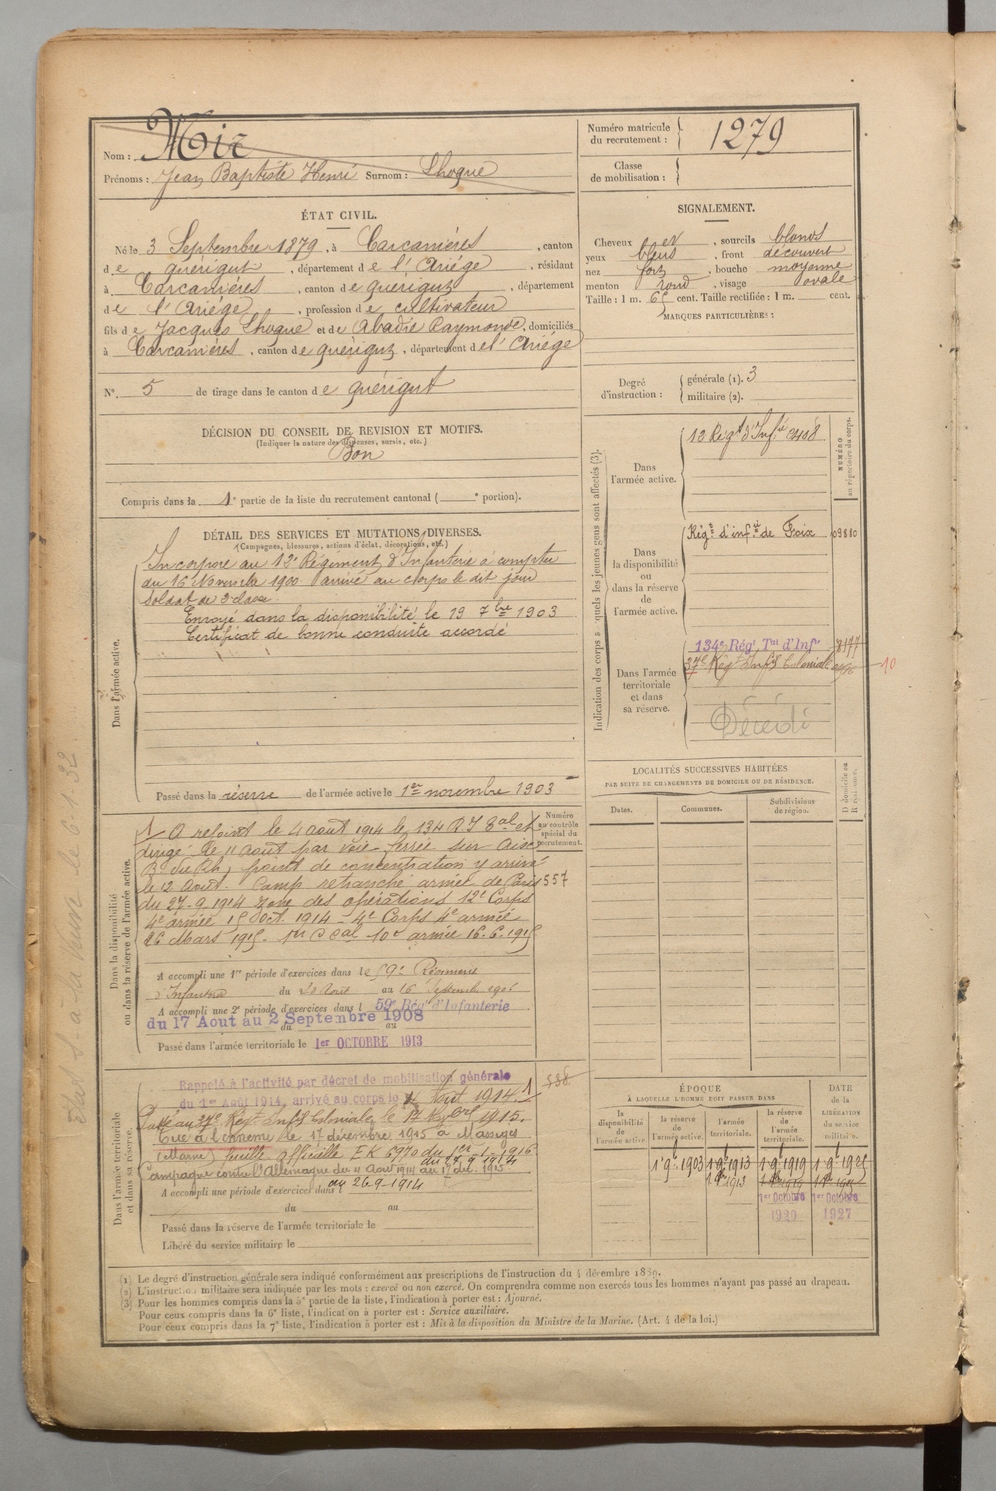 Nom : Mir
Prénoms : Jean Baptiste Henri Surnom : Lhoque
Numéro matricule du recrutement : 1279
Classe de mobilisation :
ÉTAT CIVIL.
Né le 3 Septembre 1879, à Carcanières, canton
de quérigut, département de l'Ariége, résidant
à Carcanières, canton de querigut, département
de l'Ariége, profession de cultivateur
fils de Jacques Lhoque et de Abadie Raymonde, domiciliés
à Carcanières, canton de quérigut, département de l'Ariége
N° 5 de tirage dans le canton de quérigut
SIGNALEMENT.
Cheveux et sourcils blonds
yeux bleus, front découvert
nez fort, bouche moyenne
menton rond, visage ovale
Taille : 1 m. 65 cent. Taille rectifiée : 1 m. cent.
MARQUES PARTICULIÈRES :
Degré d'instruction : générale (1). 3
militaire (2).
DÉCISION DU CONSEIL DE REVISION ET MOTIFS.
(Indiquer la nature des dispenses, sursis, etc.)
Bon
Compris dans la 1e partie de la liste du recrutement cantonal ( e portion).
DÉTAIL DES SERVICES ET MUTATIONS DIVERSES.
(Campagnes, blessures, actions d'éclat, décorations, etc.)
Dans l'armée active.
Incorpore au 12e Régiment d'Infanterie à compter
du 16 Novembre 1900 arrivé au corps le dit jour
soldat de 2 classe
Envoyé dans la disponibilité le 19 7bre 1903
Certificat de bonne conduite accordé
Passé dans la réserve de l'armée active le 1er novembre 1903
Indication des corps auxquels les jeunes gens sont affectés (3).
NUMÉRO au répertoire du corps.
Dans l'armée active.
12 Régt d'Infie
Dans la disponibilité ou dans la réserve de l'armée active.
Régt d'infie de Foix 09880
Dans l'armée territoriale et dans sa réserve.
134e Régt Tal d'Infie
37e Régt Infie Coloniale
10
Décédé
LOCALITÉS SUCCESSIVES HABITÉES
PAR SUITE DE CHANGEMENTS DE DOMICILE OU DE RÉSIDENCE.
Dates.
Communes.
Subdivisions de région.
D domicile ou R résidence.
Dans la disponibilité ou dans la réserve de l'armée active.
Numéro au contrôle spécial du recrutement.
A rejoint le 4 aout 1914 le 134 RI
dirigé le 11 Aout par voie ferrée sur
point de concentration y arrivé
le 12 Aout. Camp retranché armée de Paris 557
du 27.9.1914 zone des opérations 12e Corps
4e armée 15 Oct. 1914 - 4e Corps 4e armée
26 Mars 1915. 10e armée 16.6.1915
A accompli une 1re période d'exercices dans le 59e Régiment
d'Infanterie du 20 Aout au 16 Septembre 1906
A accompli une 2e période d'exercices dans l 59e Régt d'Infanterie
du 17 Aout au 2 Septembre 1908
Passé dans l'armée territoriale le 1er OCTOBRE 1913
Dans l'armée territoriale et dans sa réserve.
Rappelé à l'activité par décret de mobilisation générale
du 1er Août 1914, arrivé au corps le 4 Août 1914.
538
Passé au 37e Régt Infie Coloniale le 1er 1915.
Tué à l'ennemi le 17 décembre 1915 à Massiges
(Marne)
Campagne contre l'Allemagne du 4 Aout 1914 au 17 déc. 1915
A accompli une période d'exercices dans
au 26.9.1914
du au
Passé dans la réserve de l'armée territoriale le
Libéré du service militaire le
ÉPOQUE
À LAQUELLE L'HOMME DOIT PASSER DANS
DATE de la LIBÉRATION du service militaire.
la disponibilité de l'armée active.
la réserve de l'armée active.
l'armée territoriale.
la réserve de l'armée territoriale.
1 9e 1903 1 9e 1913 1 9e 1919
1er Octobre 1er Octobre
1920 1927
(1) Le degré d'instruction générale sera indiqué conformément aux prescriptions de l'instruction du 4 décembre 1889.
(2) L'instruction militaire sera indiquée par les mots : exercé ou non exercé. On comprendra comme non exercés tous les hommes n'ayant pas passé au drapeau.
(3) Pour les hommes compris dans la 5e partie de la liste, l'indication à porter est : Ajourné.
Pour ceux compris dans la 6e liste, l'indication à porter est : Service auxiliaire.
Pour ceux compris dans la 7e liste, l'indication à porter est : Mis à la disposition du Ministre de la Marine. (Art. 4 de la loi.)